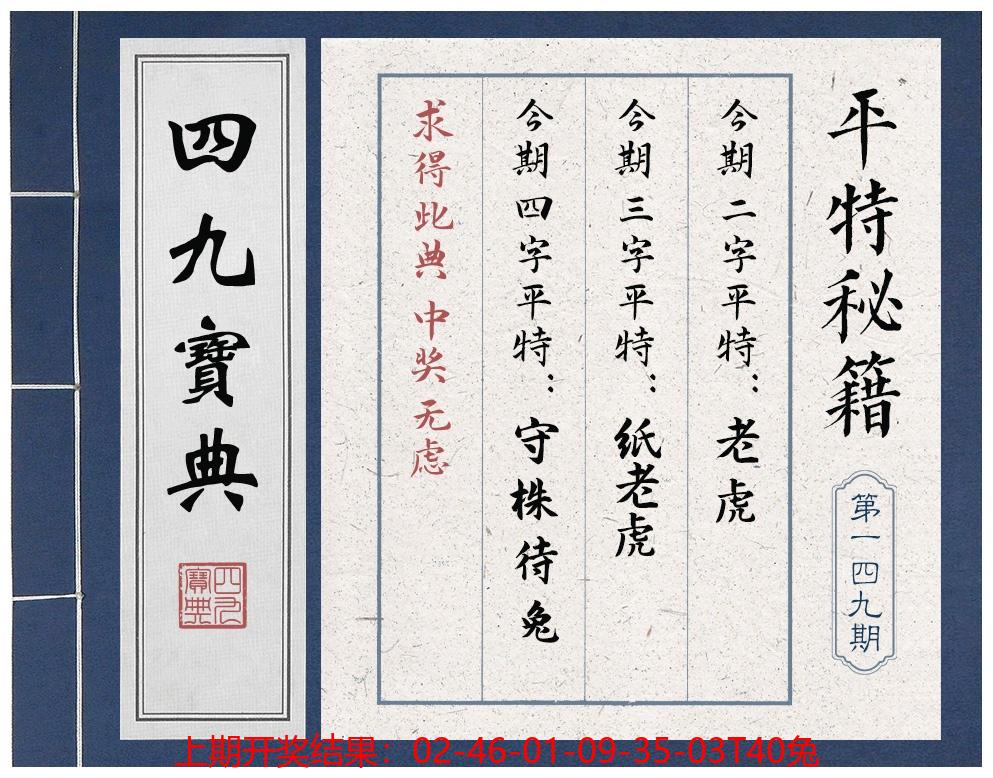 平特秘籍
第一四九期
今期二字平特：老虎
今期三字平特：纸老虎
今期四字平特：守株待兔
求得此典 中奖无虑
四九寶典
四九寶典
上期开奖结果：02-46-01-09-35-03T40兔